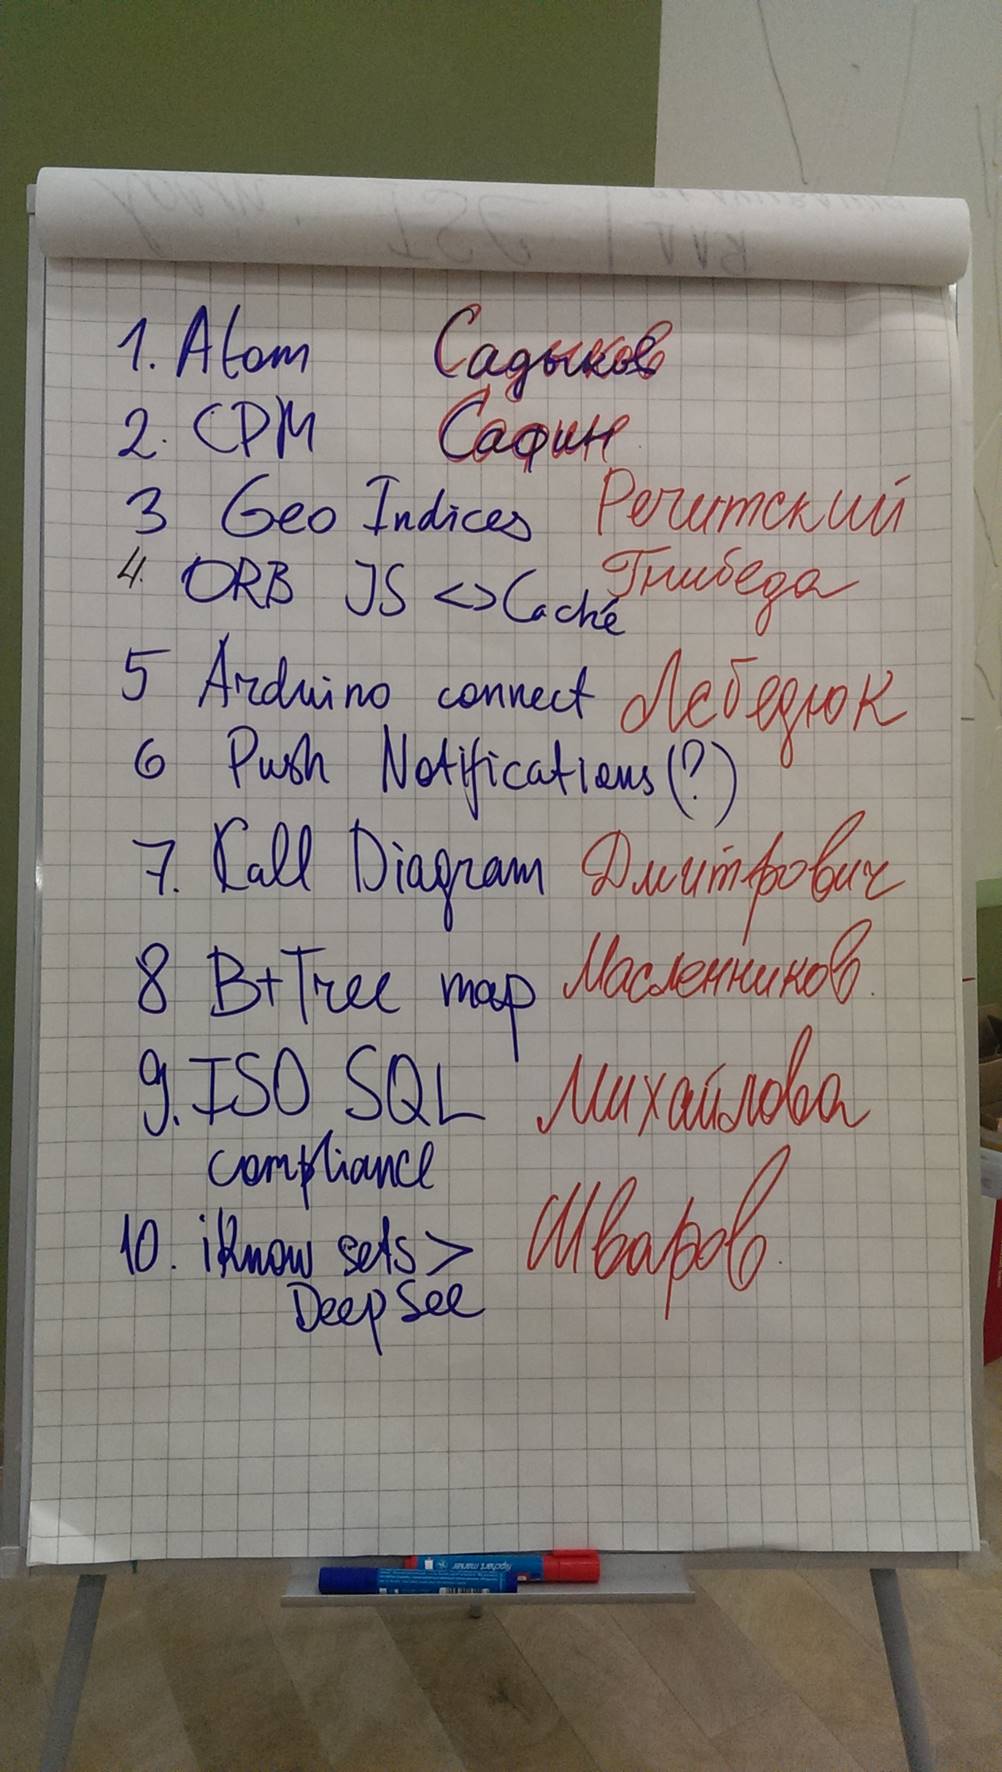 1. Atom Садыков
2. CPM Сафин
3 Geo Indices Речитский
4. ORB JS <> Caché Гнибеда
5 Arduino connect Лебедюк
6 Push Notifications (?)
7. Call Diagram Дмитрович
8 B+Tree map Масленников
9. ISO SQL Михайлова
compliance
10. iKnow sets > Шваров
DeepSee
flipchart marker